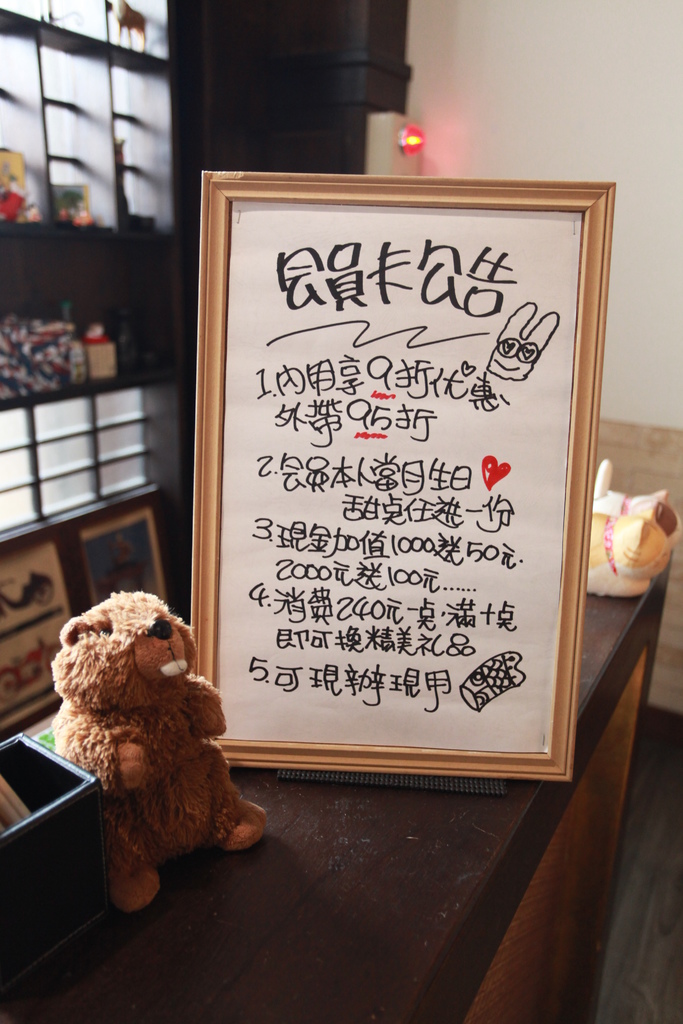 会員卡公告
1.內用享9折优惠、
外帶95折
2.会員本人當月生日
甜桌任選一份
3.現金加值1000送50元.
2000元送100元......
4.消費240元一桌.滿十桌
即可換精美礼品
5.可現辦現用